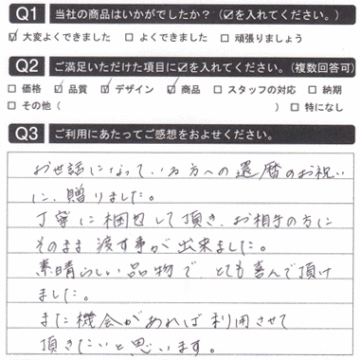 Q1 当社の商品はいかがでしたか？（☑を入れてください。）
☑ 大変よくできました □ よくできました □ 頑張りましょう
Q2 ご満足いただけた項目に☑を入れてください。（複数回答可）
□ 価格 ☑ 品質 ☑ デザイン ☑ 商品 □ スタッフの対応 □ 納期
□ その他（ ） □ 特になし
Q3 ご利用にあたってご感想をおよせください。
お世話になっている方への還暦のお祝い
に、贈りました。
丁寧に梱包して頂き、お相手の方に
そのまま渡す事が出来ました。
素晴らしい品物で、とても喜んで頂け
ました。
また機会があれば利用させて
頂きたいと思います。